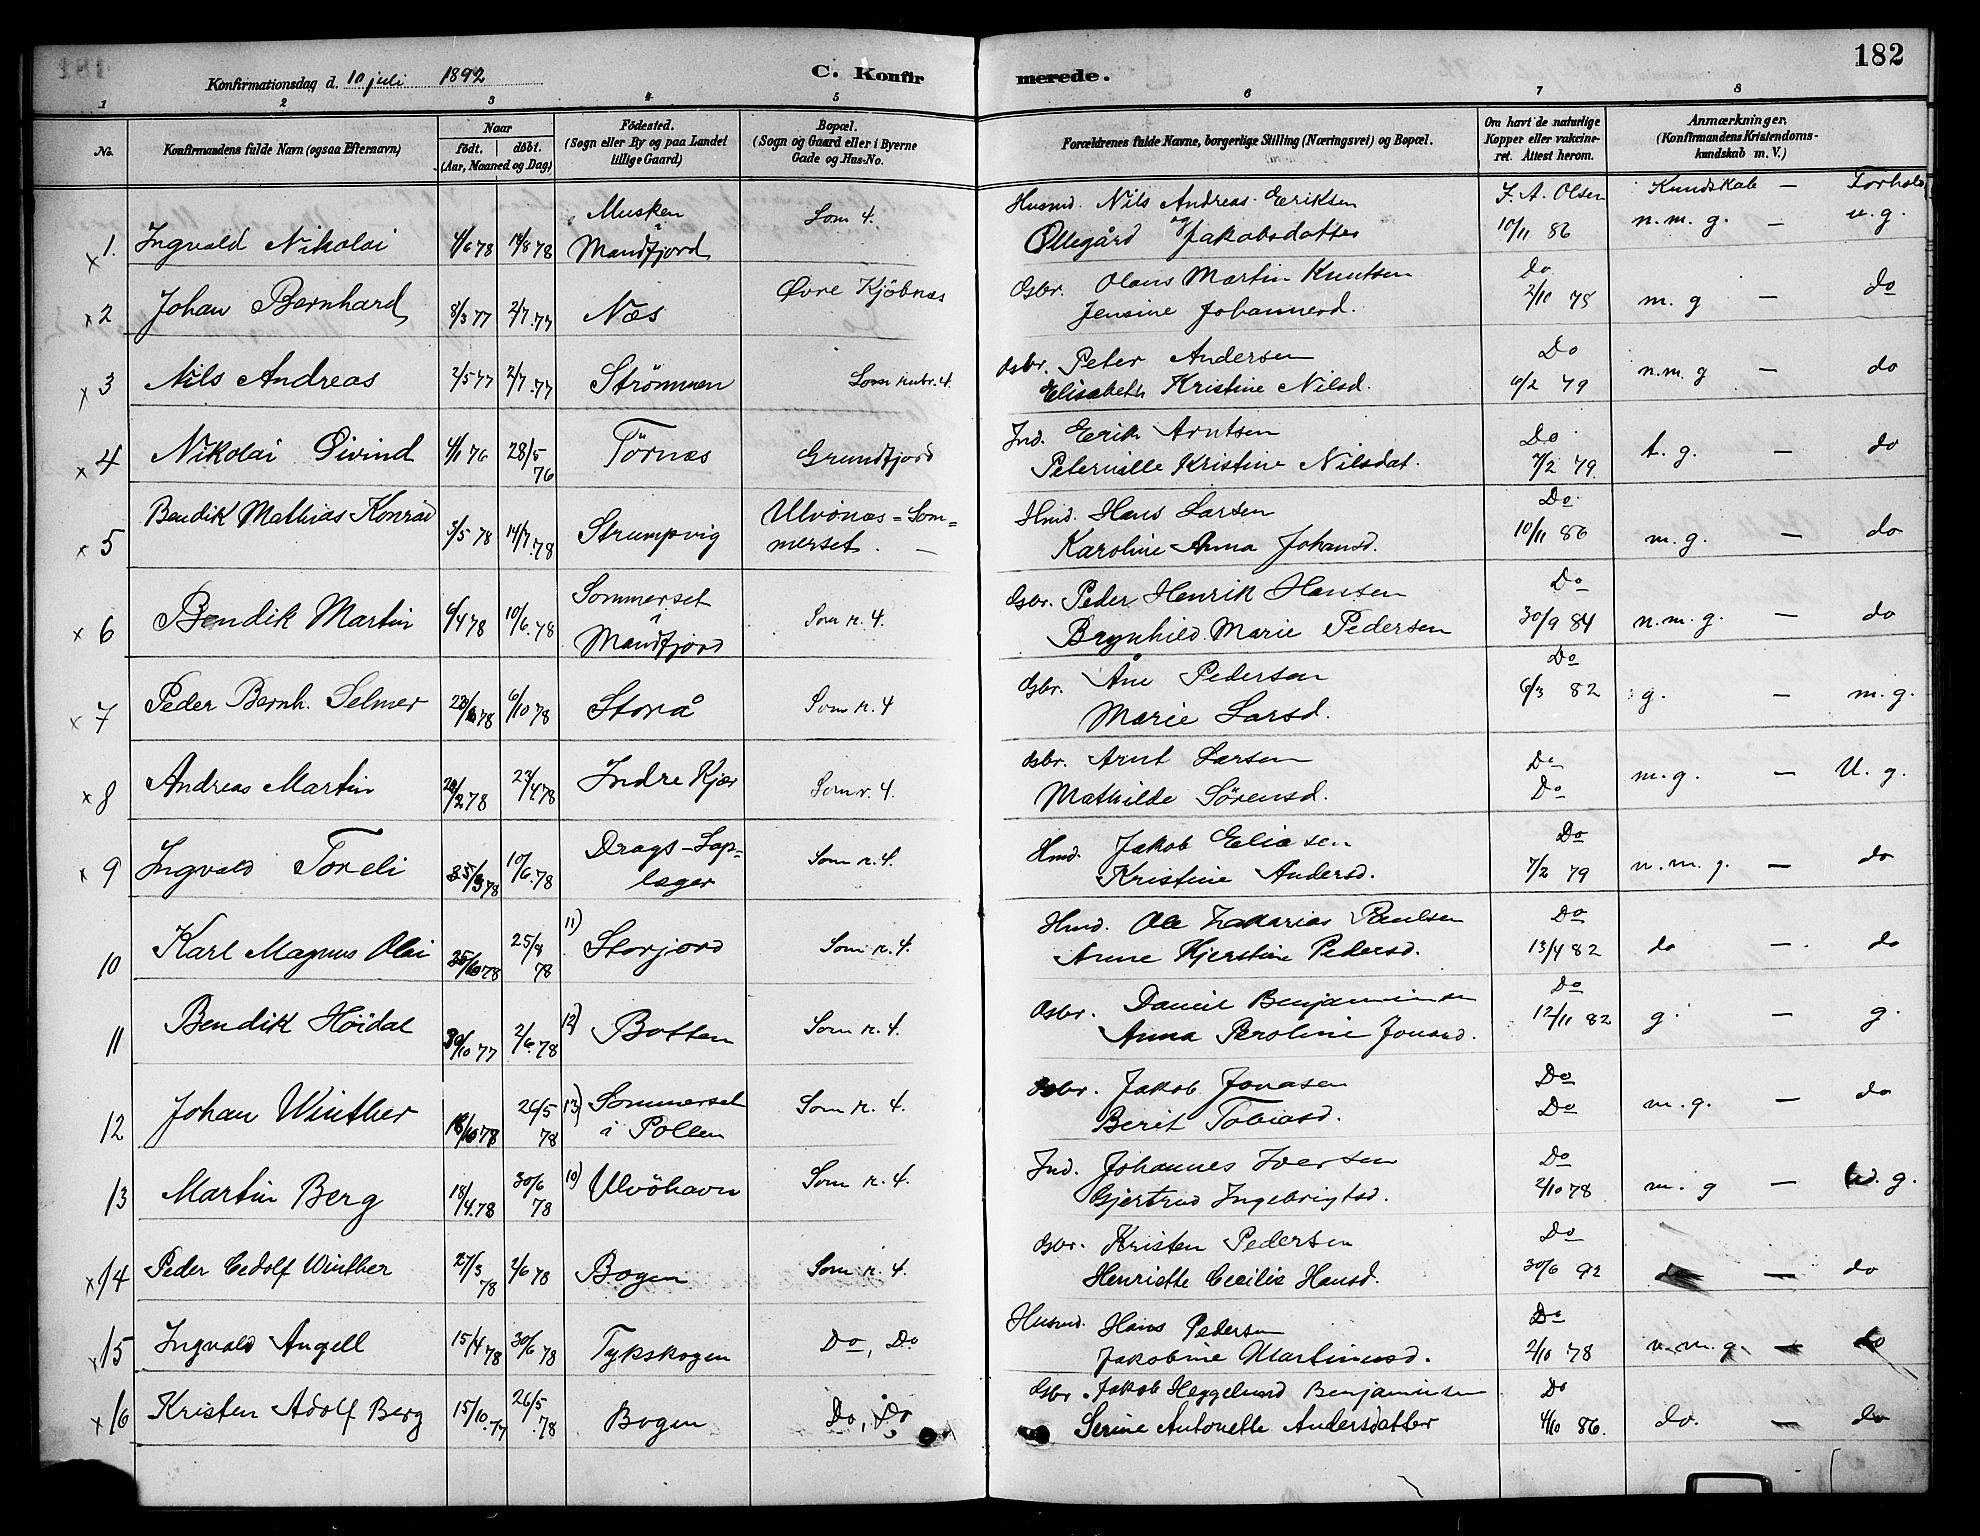 182
Konfirmationsdag d. 10 juli 1892 C. Konfirmerede.
1 2 3 4 5 6 7 8
No. Konfirmandens fulde Navn (ogsaa Efternavn) Naar födt. döbt. (Aar, Maaned og Dag) Födested. (Sogn eller By og paa Landet tillige Gaard) Bopæl. (Sogn og Gaard eller i Byerne Gade og Hus-No. Forældrenes fulde Navne, borgerlige Stilling (Næringsvei) og Bopæl. Om havt de naturlige Kopper eller vakcineret. Attest herom. Anmærkninger. (Konfirmandens Kristendomskundskab m. V.)
Musken Som 4. Husmd. Nils Andreas Eriksen F. A. Olsen Kundskab — Forhold
x 1. Ingvald Nikolai 4/6 78 18/8 78 i Mandfjord og Øllegård Jakobsdatter 10/11 86 n. m. g. — u. g.
x 2 Johan Bernhard 8/3 77 2/7. 77 Næs Øvre Kjöbnæs Gsbr. Olaus Martin Knutsen Do
Jensine Johannesd. 2/10 78 m. g — do
x 3 Nils Andreas 2/5 77 2/7. 77 Strömmen Som nbr. 4. Gsbr. Peter Andersen Do
Elisabeth Kristine Nilsd. 6/2 79 n. m. g — do
x 4 Nikolai Öivind 4/1 76 28/5 76 Törnæs Grundfjord Ind. Erik Arntsen Do
Peternille Kristine Nilsdat. 7/2 79. t. g. — do
x 5 Bendik Mathias Konrad 3/5 78 14/7. 78 Strumpvig Ulvönæs=Som=
merset. — Hmd. Hans Larsen Do
Karoline Anna Johansd. 10/11 86 m. g. — do
x 6 Bendik Martin 6/4 78 10/6. 78 Sommerset i Mandfjord Som n. 4. Gsbr. Peder Henrik Hansen Do
Brynhild Marie Pedersen 30/9 84 n. m. g. — do
x 7 Peder Bernh. Selmer 6/10 78 Storå Som n. 4 Gbr. Åne Pedersen Do
Marie Larsd. 6/3 82 g. — m. g.
x 8 Andreas Martin 23/4 78 Indre Kjær Som n. 4. Gsbr. Arnt Larsen Do
Mathilde Sörensd. Do m. g. — U. g.
x 9 Ingvald Toreli 10/6. 78 Drags-Lap=
læger Som n. 4. Hmd. Jakob Eliasen Do
Kristine Andersd. 7/2 79 n. m. g. — do
10 Karl Magnus Olai 25/8 78 11) Storjord Som n. 4. Hmd. Ole Zakarias Paulsen Do
Anne Kjerstine Pedersd. 13/4 82 do — do
11 Bendik Höidal 30/10 77 2/6. 78 12) Botten Som n. 4. Gsbr. Daniel Benjaminsen Do
Anna Peroline Jonasd. 12/11 82 g. — g.
12 Johan Winther 26/5 78 13) Sommerset i Pollen Som n. 4. Gsbr. Jakob Jonasen Do
Berit Tobiasd. Do m. g. — do
13 Martin Berg 18/4. 78 30/6 78 10) Ulvöhavn Som n. 4. Ind. Johannes Iversen Do
Gjertrud Ingebrigtsd. 2/10 78 m. g — g.
x 14 Peder Cedolf Winther 27/3 78 2/6 78 Bogen Som n. 4. Gbr. Kristen Pedersen Do
Henriette Cecilie Hansd. 30/6 92 — do
x 15 Ingvald Angell 15/4 78 30/6 78 Tykskogen Do, Do Husmd. Hans Pedersen Do
Jakobine Martinusd. 2/10 78 n. m. g. — do
x 16 Kristen Adolf Berg 15/10. 77 26/5. 78 Bogen Do, Do Gbr Jakob Heggelund Benjaminsen Do
Serine Antonette Andersdatter 4/10 86. do. — do